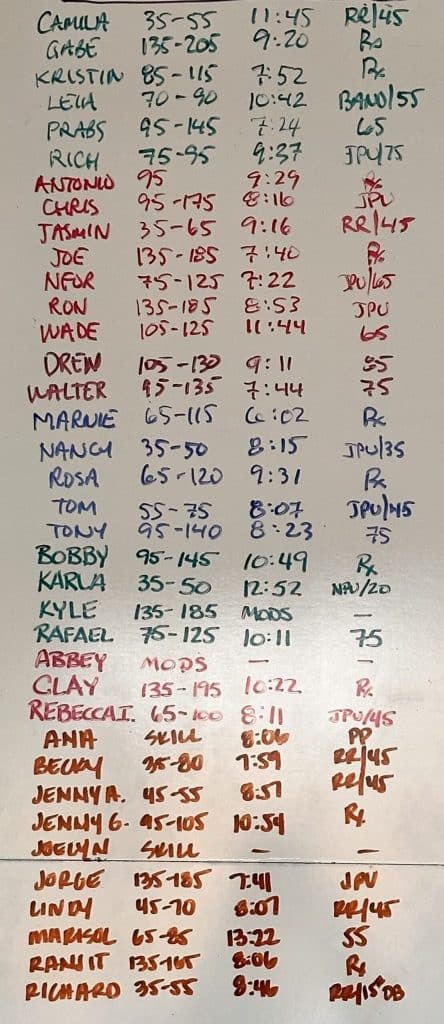 CAMILA 35-55 11:45 RR/45
GABE 135-205 9:20 Rx
KRISTIN 85-115 7:52 Rx
LEILA 70-90 10:42 BAND/55
PRABS 95-145 7:24 65
RICH 75-95 9:37 JPU/75
ANTONIO 95 9:29 Rx
CHRIS 95-175 8:16 JPU
JASMIN 35-65 9:16 RR/45
JOE 135-185 7:40 Rx
NFOR 75-125 7:22 JPU/65
RON 135-185 8:53 JPU
WADE 105-125 11:44 65
DREW 105-130 9:11 85
WALTER 95-135 7:44 75
MARNIE 65-115 6:02 Rx
NANCY 35-50 8:15 JPU/35
ROSA 65-120 9:31 Rx
TOM 55-75 8:07 JPU/45
TONY 95-140 8:23 75
BOBBY 95-145 10:49 Rx
KARLA 35-50 12:52 NPU/20
KYLE 135-185 MODS —
RAFAEL 75-125 10:11 75
ABBEY MODS — —
CLAY 135-195 10:22 Rx
REBECCA I. 65-100 8:11 JPU/45
ANA SKILL 8:06 PP
BECKY 35-80 7:59 RR/45
JENNY A. 45-55 8:57 RR/45
JENNY G. 95-105 10:54 Rx
JOELYN SKILL — —
JORGE 135-185 7:41 JPU
LINDY 45-70 8:07 RR/45
MARISOL 65-85 13:22 55
RANJIT 135-165 8:06 Rx
RICHARD 35-55 8:46 RR/15# DB